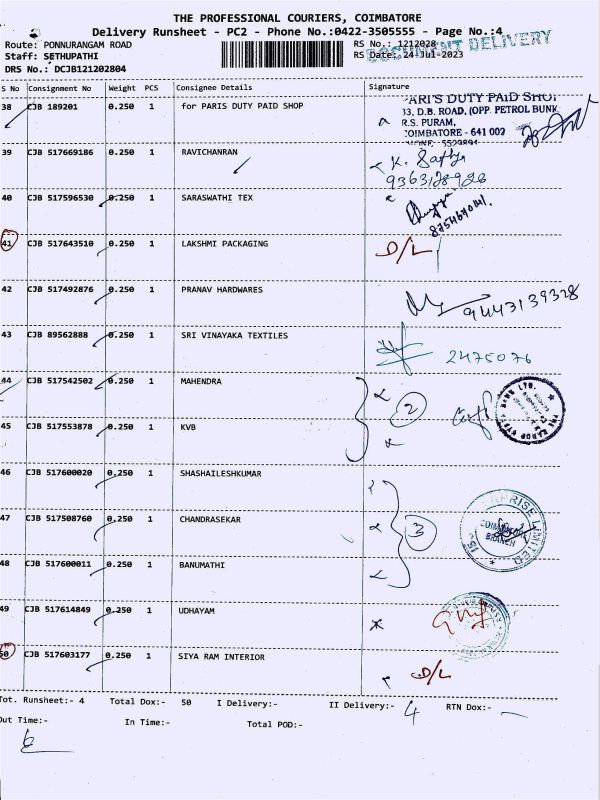 THE PROFESSIONAL COURIERS, COIMBATORE
Delivery Runsheet - PC2 - Phone No.:0422-3505555 - Page No.:4
Route: PONNURANGAM ROAD
RS No.: 1212028
DOCUMENT DELIVERY
Staff: SETHUPATHI
RS Date: 24-Jul-2023
DRS No.: DCJB121202804
S No Consignment No Weight PCS Consignee Details Signature
38 CJB 189201 0.250 1 for PARIS DUTY PAID SHOP
PARI'S DUTY PAID SHOP
33, D.B. ROAD, (OPP. PETROL BUNK
R.S. PURAM,
COIMBATORE - 641 002
39 CJB 517669186 0.250 1 RAVICHANRAN
9363128928
40 CJB 517596530 0.250 1 SARASWATHI TEX
41 CJB 517643510 0.250 1 LAKSHMI PACKAGING D/L
42 CJB 517492876 0.250 1 PRANAV HARDWARES 9443139328
43 CJB 89562888 0.250 1 SRI VINAYAKA TEXTILES 2475076
44 CJB 517542502 0.250 1 MAHENDRA 2
45 CJB 517553878 0.250 1 KVB
46 CJB 517600020 0.250 1 SHASHAILESHKUMAR
47 CJB 517508760 0.250 1 CHANDRASEKAR 3
COIMBATORE
BRANCH
48 CJB 517600011 0.250 1 BANUMATHI
49 CJB 517614849 0.250 1 UDHAYAM
50 CJB 517603177 0.250 1 SIYA RAM INTERIOR D/L
Tot. Runsheet:- 4 Total Dox:- 50 I Delivery:- II Delivery:- 4 RTN Dox:-
Out Time:- In Time:- Total POD:-